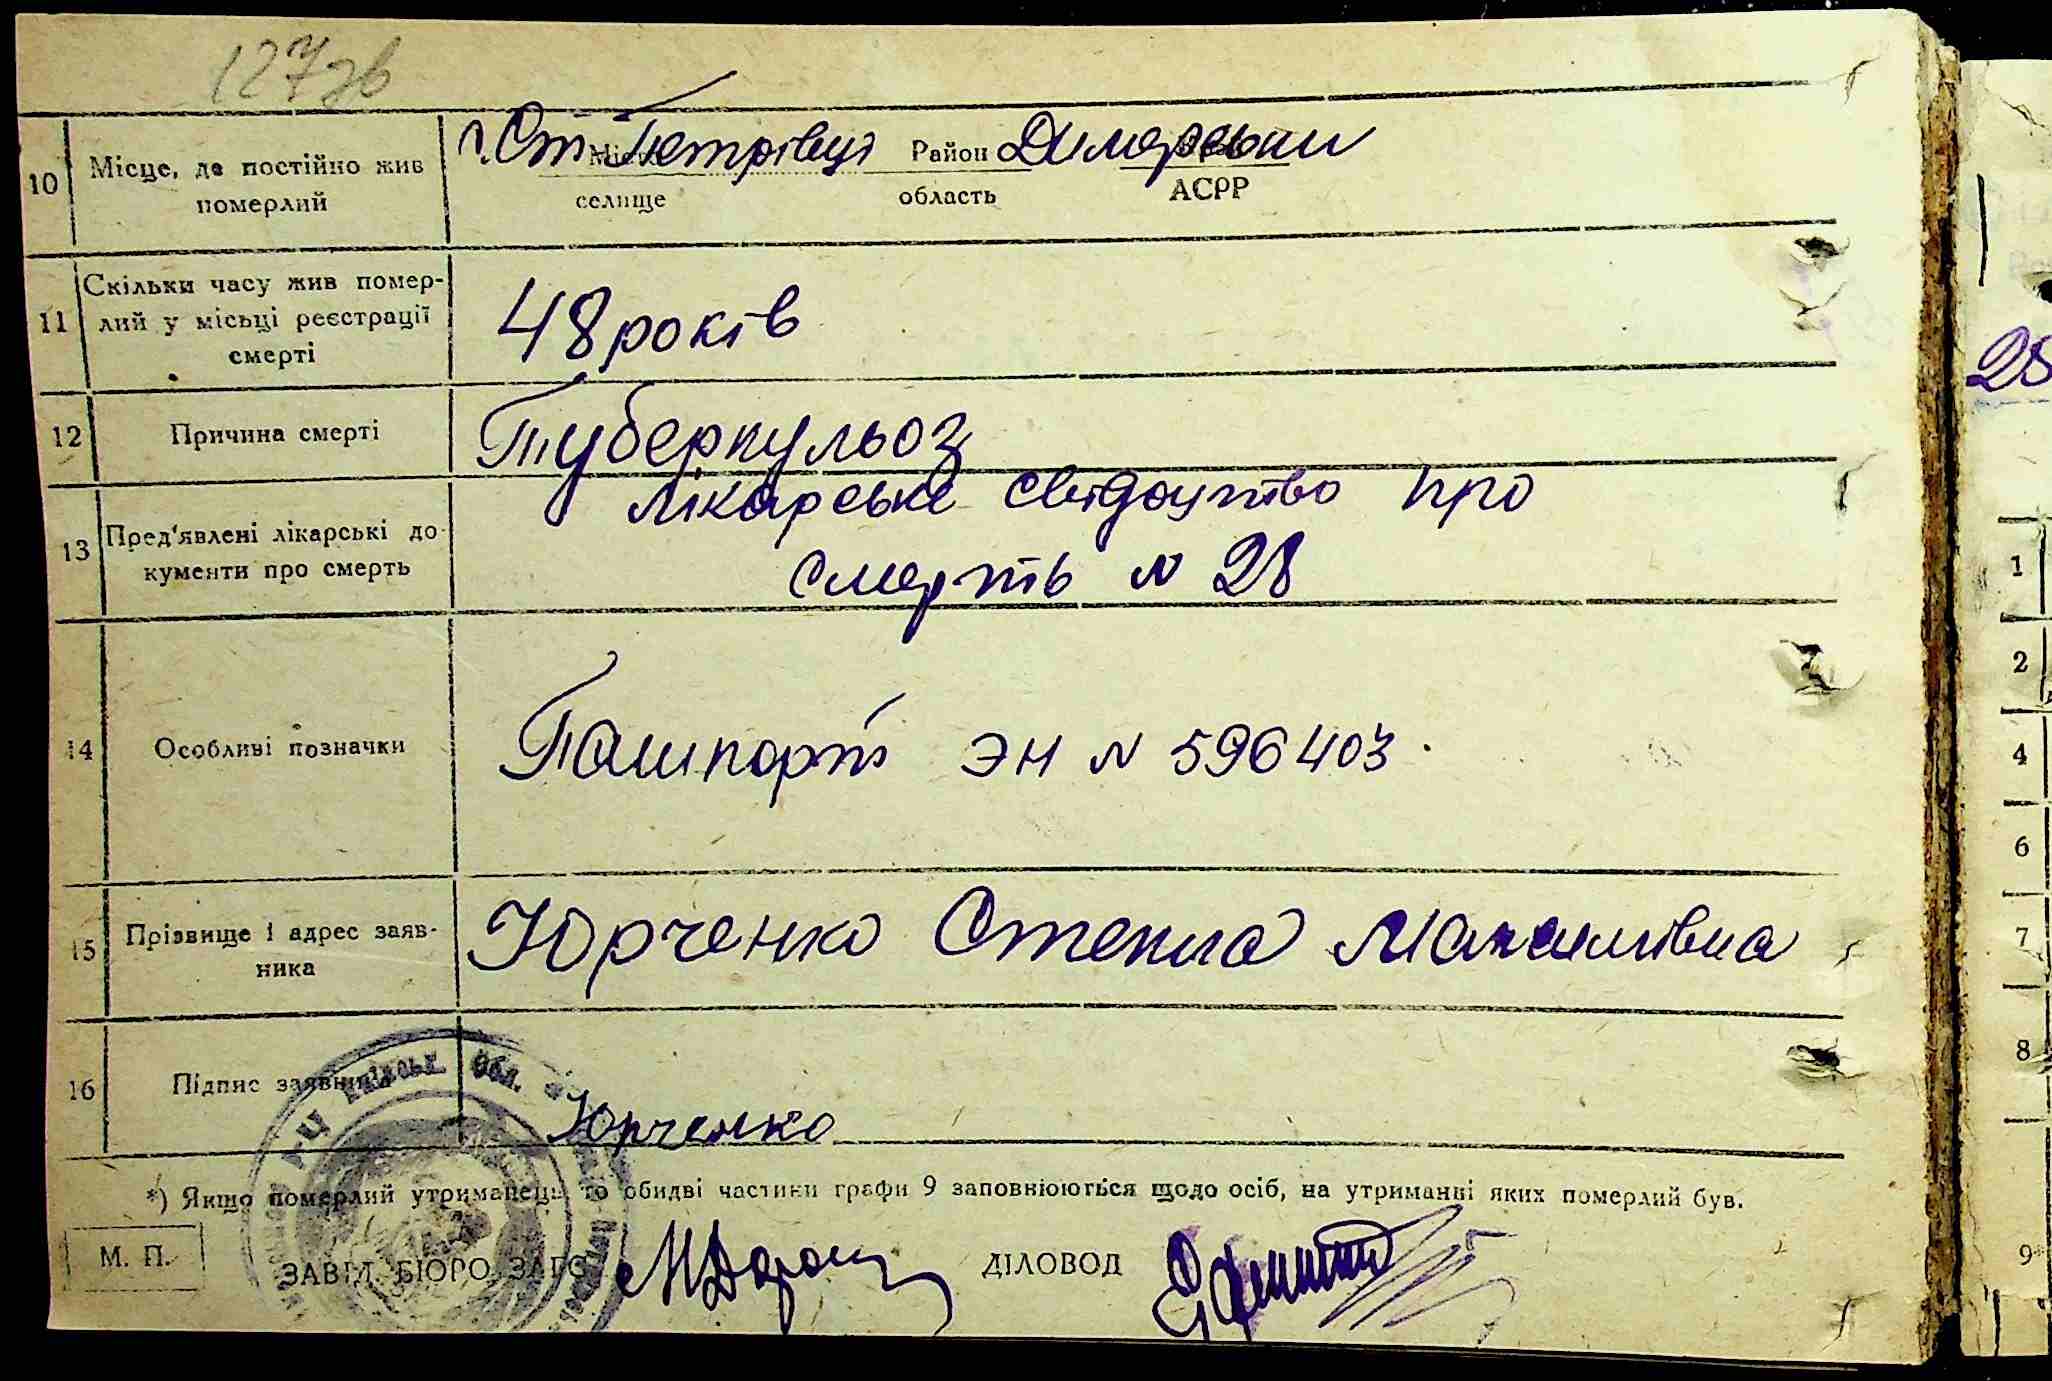 127зв
10 Місце, де постійно жив
померлий
с. Ст Петрівці Район Димерський
селище область АСРР
11 Скільки часу жив помер-
лий у місьці реєстрації
смерті
48 років
12 Причина смерті
Туберкульоз
13 Пред'явлені лікарські до-
кументи про смерть
лікарське свідоцтво про
смерть N 28
14 Особливі позначки
Пашпорт ЭН N 596403
15 Прізвище і адрес заяв-
ника
Юрченко Степла Максимівна
16 Підпис заявника
Юрченко
Київськ. Обл.
*) Якщо померлий утриманець, то обидві частини графи 9 заповнюються щодо осіб, на утриманні яких померлий був.
М. П.
ЗАВІД. БЮРО ЗАГС
ДІЛОВОД
28
1
2
4
6
7
8
9